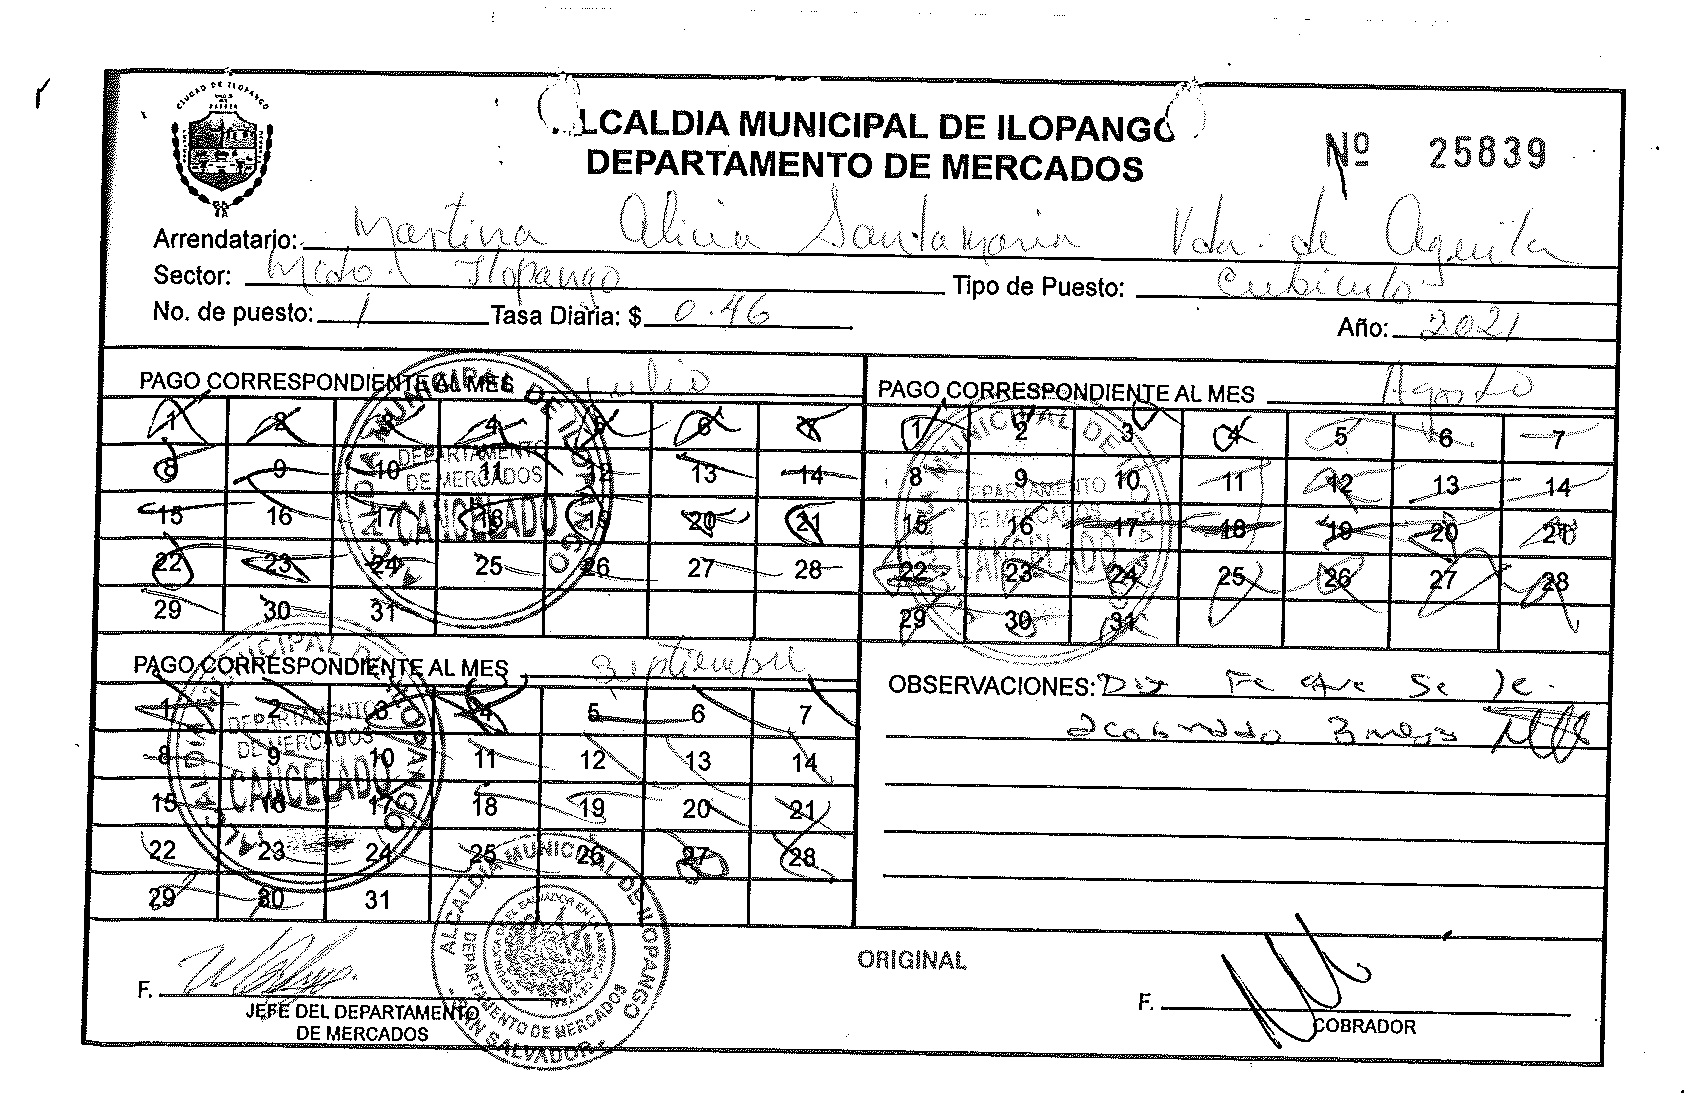 CIUDAD DE ILOPANGO
ALCALDIA MUNICIPAL DE ILOPANGO
DEPARTAMENTO DE MERCADOS
Nº 25839
Arrendatario: Martina Alicia Santamaria Vda. de Aguila
Sector: Mcdo. Ilopango Tipo de Puesto: Cubiculo
No. de puesto: 1 Tasa Diaria: $ 0.46 Año: 2021
PAGO CORRESPONDIENTE AL MES Julio
1 2 3 4 5 6 7
8 9 10 11 12 13 14
15 16 17 18 19 20 21
22 23 24 25 26 27 28
29 30 31
ALCALDIA MUNICIPAL DE ILOPANGO
DEPARTAMENTO
DE MERCADOS
CANCELADO
PAGO CORRESPONDIENTE AL MES Agosto
1 2 3 4 5 6 7
8 9 10 11 12 13 14
15 16 17 18 19 20 21
22 23 24 25 26 27 28
29 30 31
DEPARTAMENTO
DE MERCADOS
CANCELADO
PAGO CORRESPONDIENTE AL MES Septiembre
1 2 3 4 5 6 7
8 9 10 11 12 13 14
15 16 17 18 19 20 21
22 23 24 25 26 27 28
29 30 31
ALCALDIA MUNICIPAL DE ILOPANGO
DEPARTAMENTO
DE MERCADOS
CANCELADO
OBSERVACIONES: Doy Fe que Se le.
a cobrado 3 meses
ORIGINAL
F.
JEFE DEL DEPARTAMENTO
DE MERCADOS
ALCALDIA MUNICIPAL DE ILOPANGO
DEPARTAMENTO DE MERCADOS
SAN SALVADOR
F.
COBRADOR